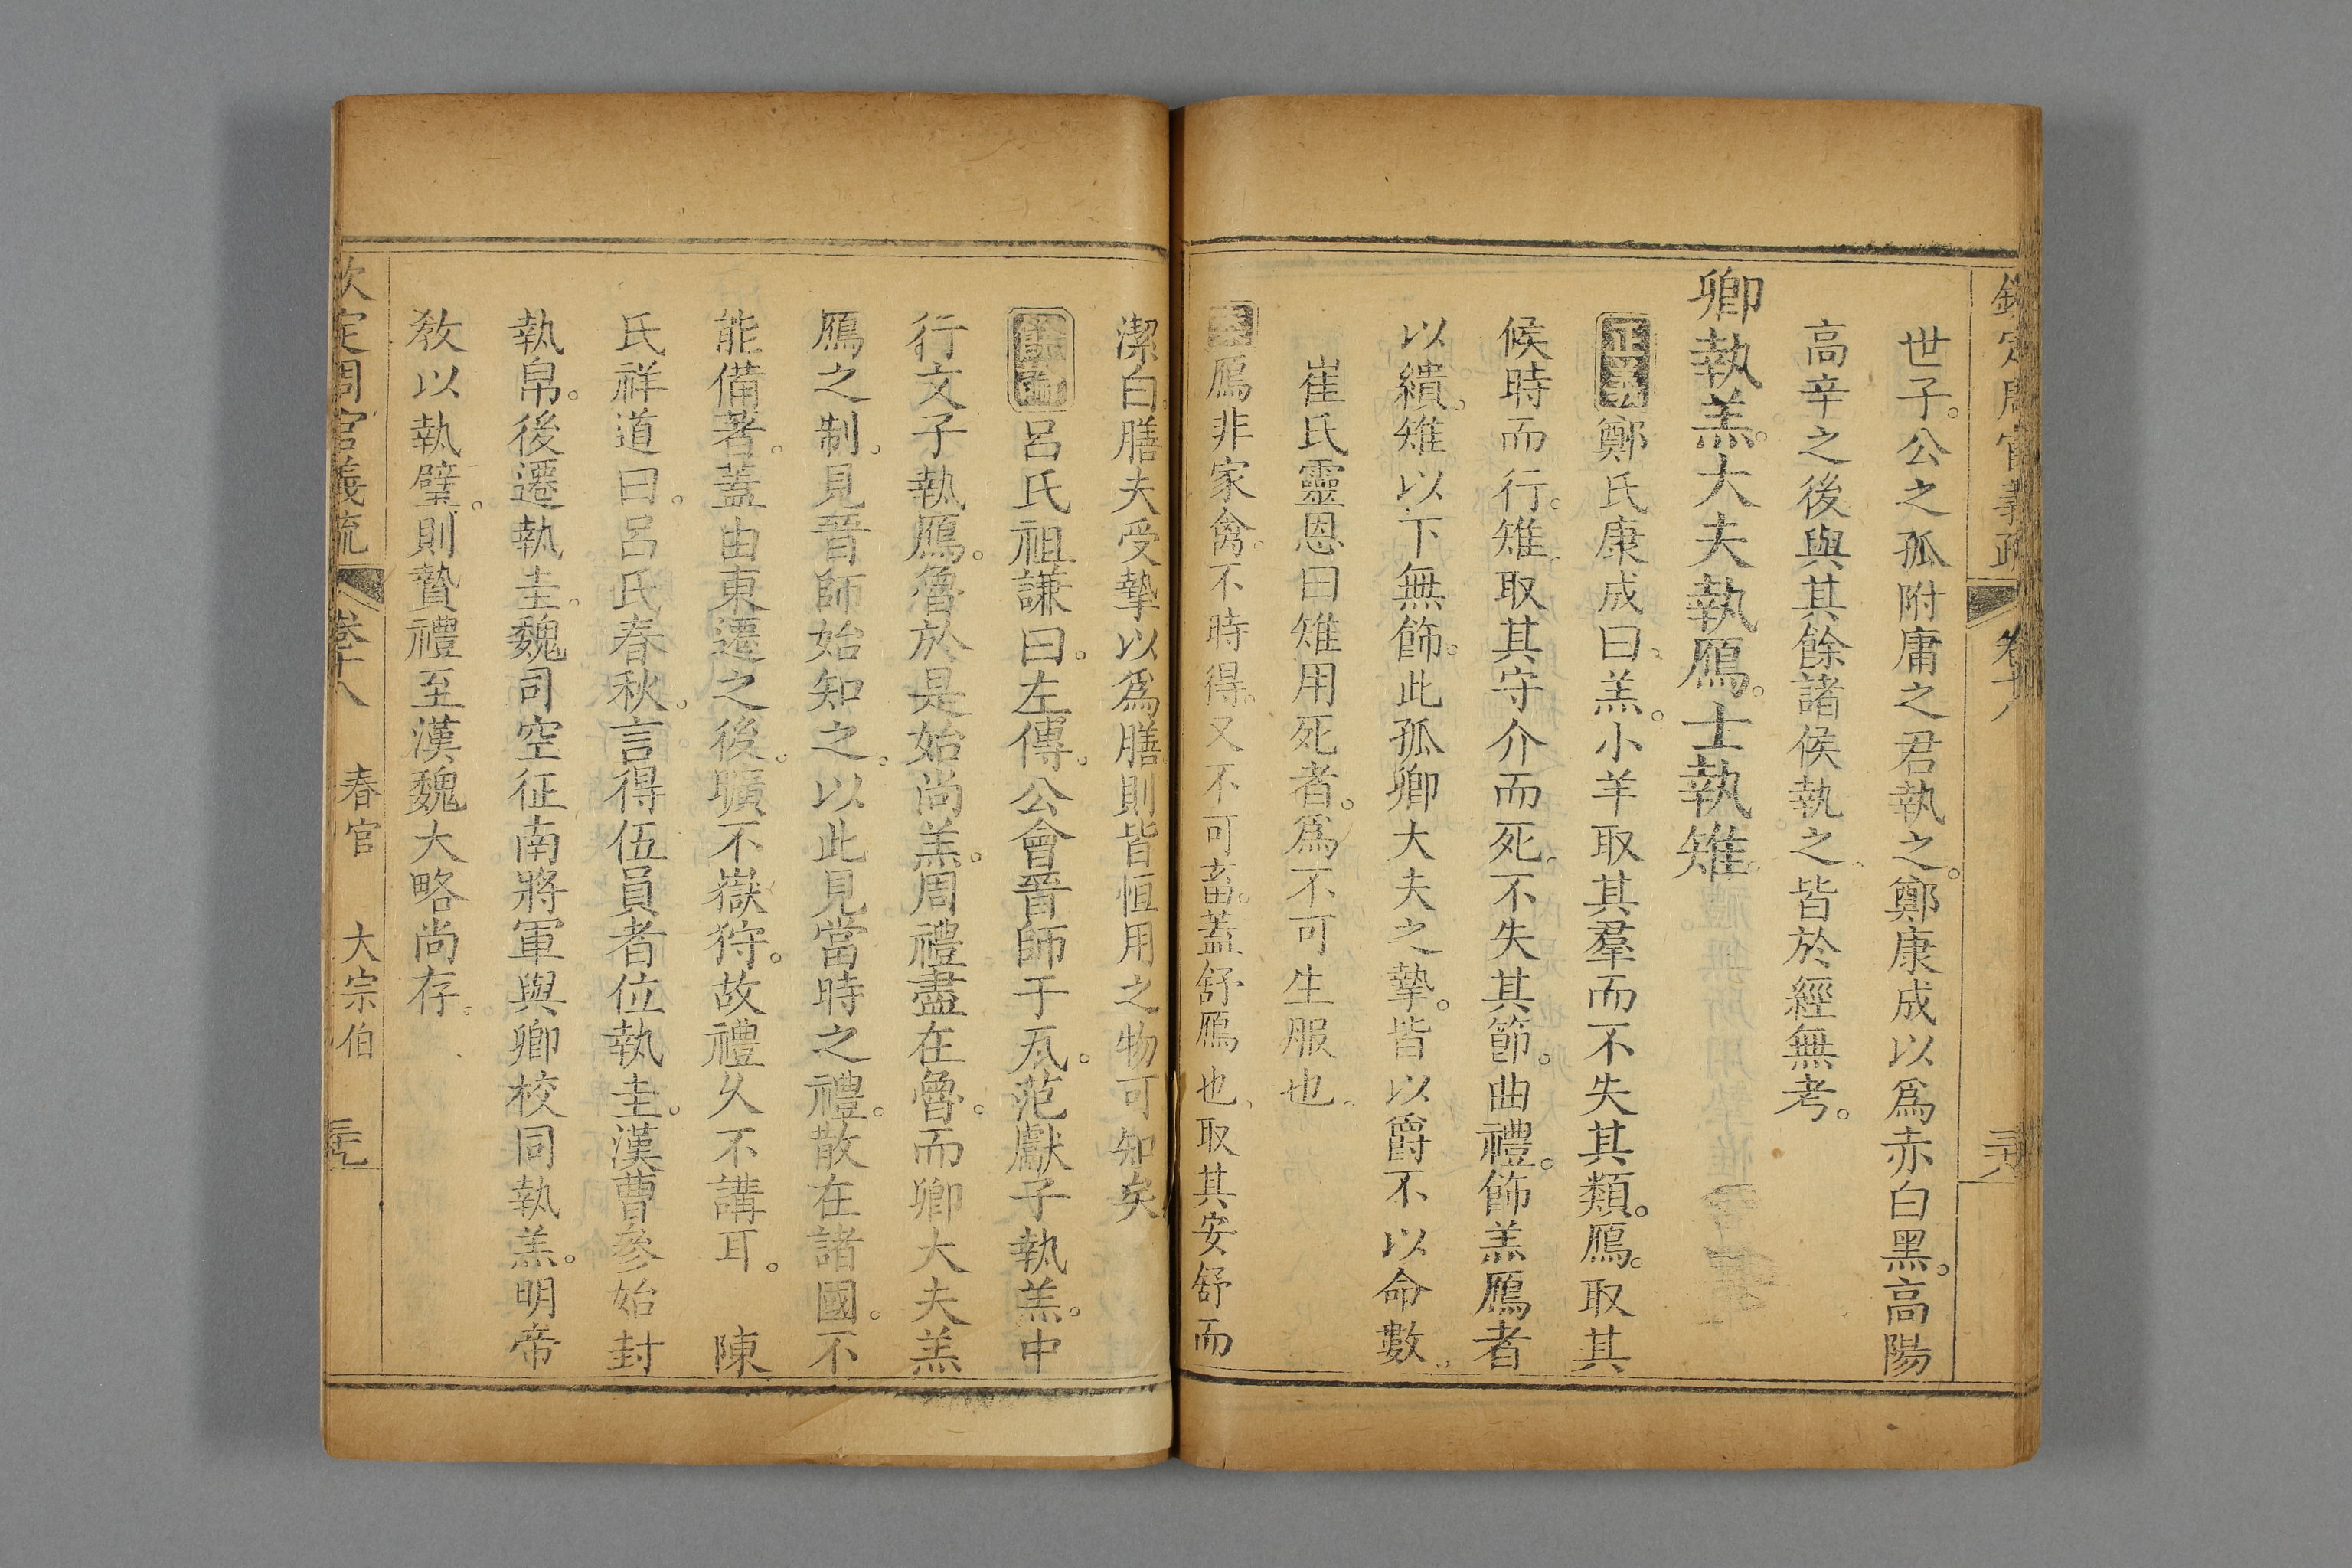 欽定周官義疏 卷十八
世子。公之孤附庸之君執之。鄭康成以爲赤白黑。高陽
高辛之後與其餘諸侯執之、皆於經無考。
卿執羔。大夫執鴈。士執雉。
正義鄭氏康成曰、羔。小羊取其羣而不失其類。鴈。取其
候時而行。雉、取其守介而死、不失其節。曲禮。飾羔鴈者
以繢。雉以下無飾。此孤卿大夫之摯。皆以爵不以命數。
崔氏靈恩曰雉用死者。爲不可生服也。
鴈非家禽。不時得。又不可畜。蓋舒鴈也、取其安舒而
潔白。膳夫受摯以爲膳。則皆恒用之物可知矣
呂氏祖謙曰。左傳。公會晉師于瓦。范獻子執羔。中
行文子執鴈。魯於是始尚羔。周禮盡在魯。而卿大夫羔
鴈之制。見晉師始知之。以此見當時之禮。散在諸國。不
能備著。蓋由東遷之後。曠不嶽狩。故禮久不講耳。 陳
氏祥道曰。呂氏春秋。言得伍員者位執圭。漢曹參始封
執帛。後遷執圭。魏司空征南將軍與卿校同執羔。明帝
敎以執璧。則贄禮至漢魏大略尚存。
欽定周官義疏 卷十八 春官 大宗伯